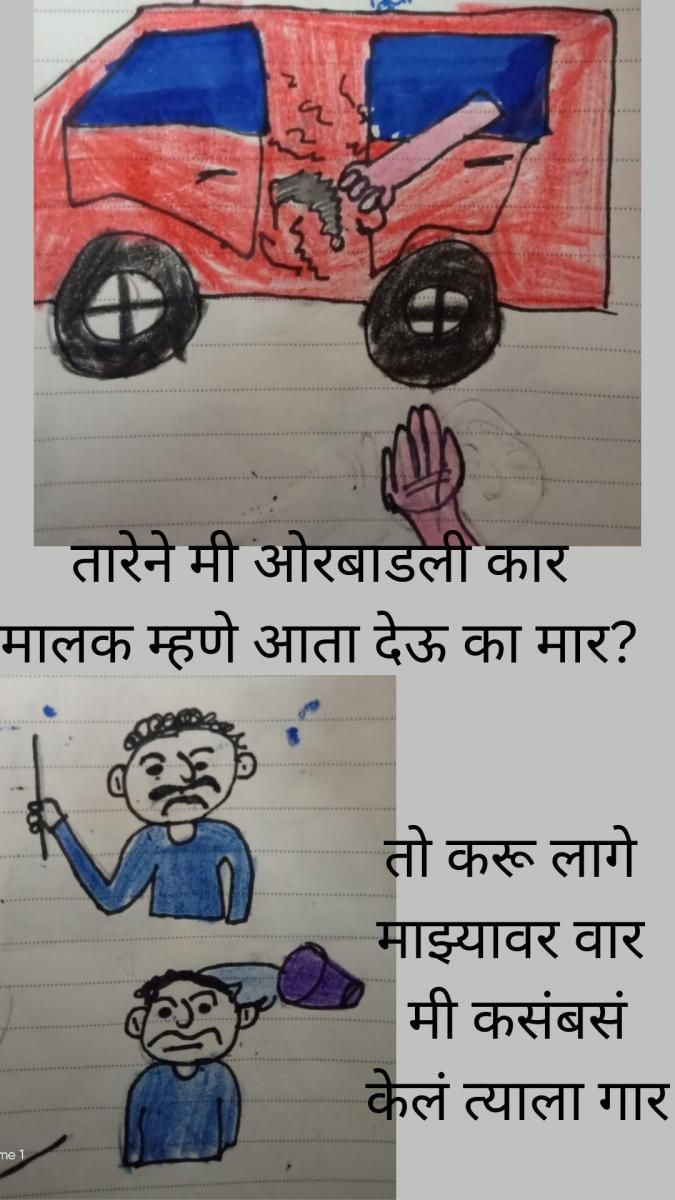 तारेने मी ओरबाडली कार
मालक म्हणे आता देऊ का मार?
तो करू लागे
माझ्यावर वार
मी कसंबसं
केलं त्याला गार
me 1